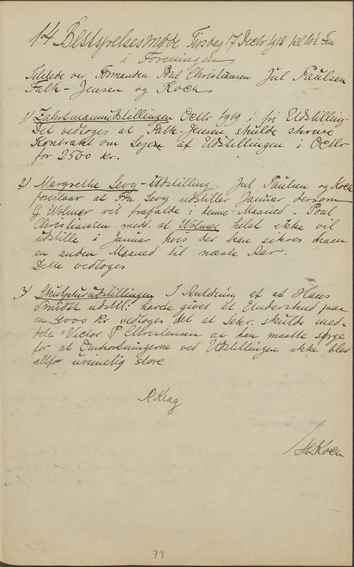 14 Bestyrelsesmøde Tirsdag 17 Decbr 1918
i Foreningen
Tilstede var Formanden Poul Christiansen Jul Paulsen
Falk-Jensen og Koch
1) Udstillingen Octbr 1919 i fri Udstilling
Det vedtoges at Falk-Jensen skulde skrive
Kontrakt om Lejen af Udstillingen i Octbr
for 2500 kr.
2) Margrethe Levy-Udstilling. Jul Paulsen og Koch
foreslaar at Fru Levy udstiller Januar dersom
J Wolmer vil frafalde denne Maaned. Poul
Christiansen med. at Wolmer helst ikke vil
udstille i Januar hvis der kan sikres ham
en anden Maaned til næste Aar.
Dette vedtoges
3) I Anledning af at
udstill. havde givet et Underskud paa
kr vedtoges det at Sekr. skulde med-
dele Victor P at han maatte sørge
for at Omkostningerne ved Udstillingen ikke blev
altfor urimelig store
77